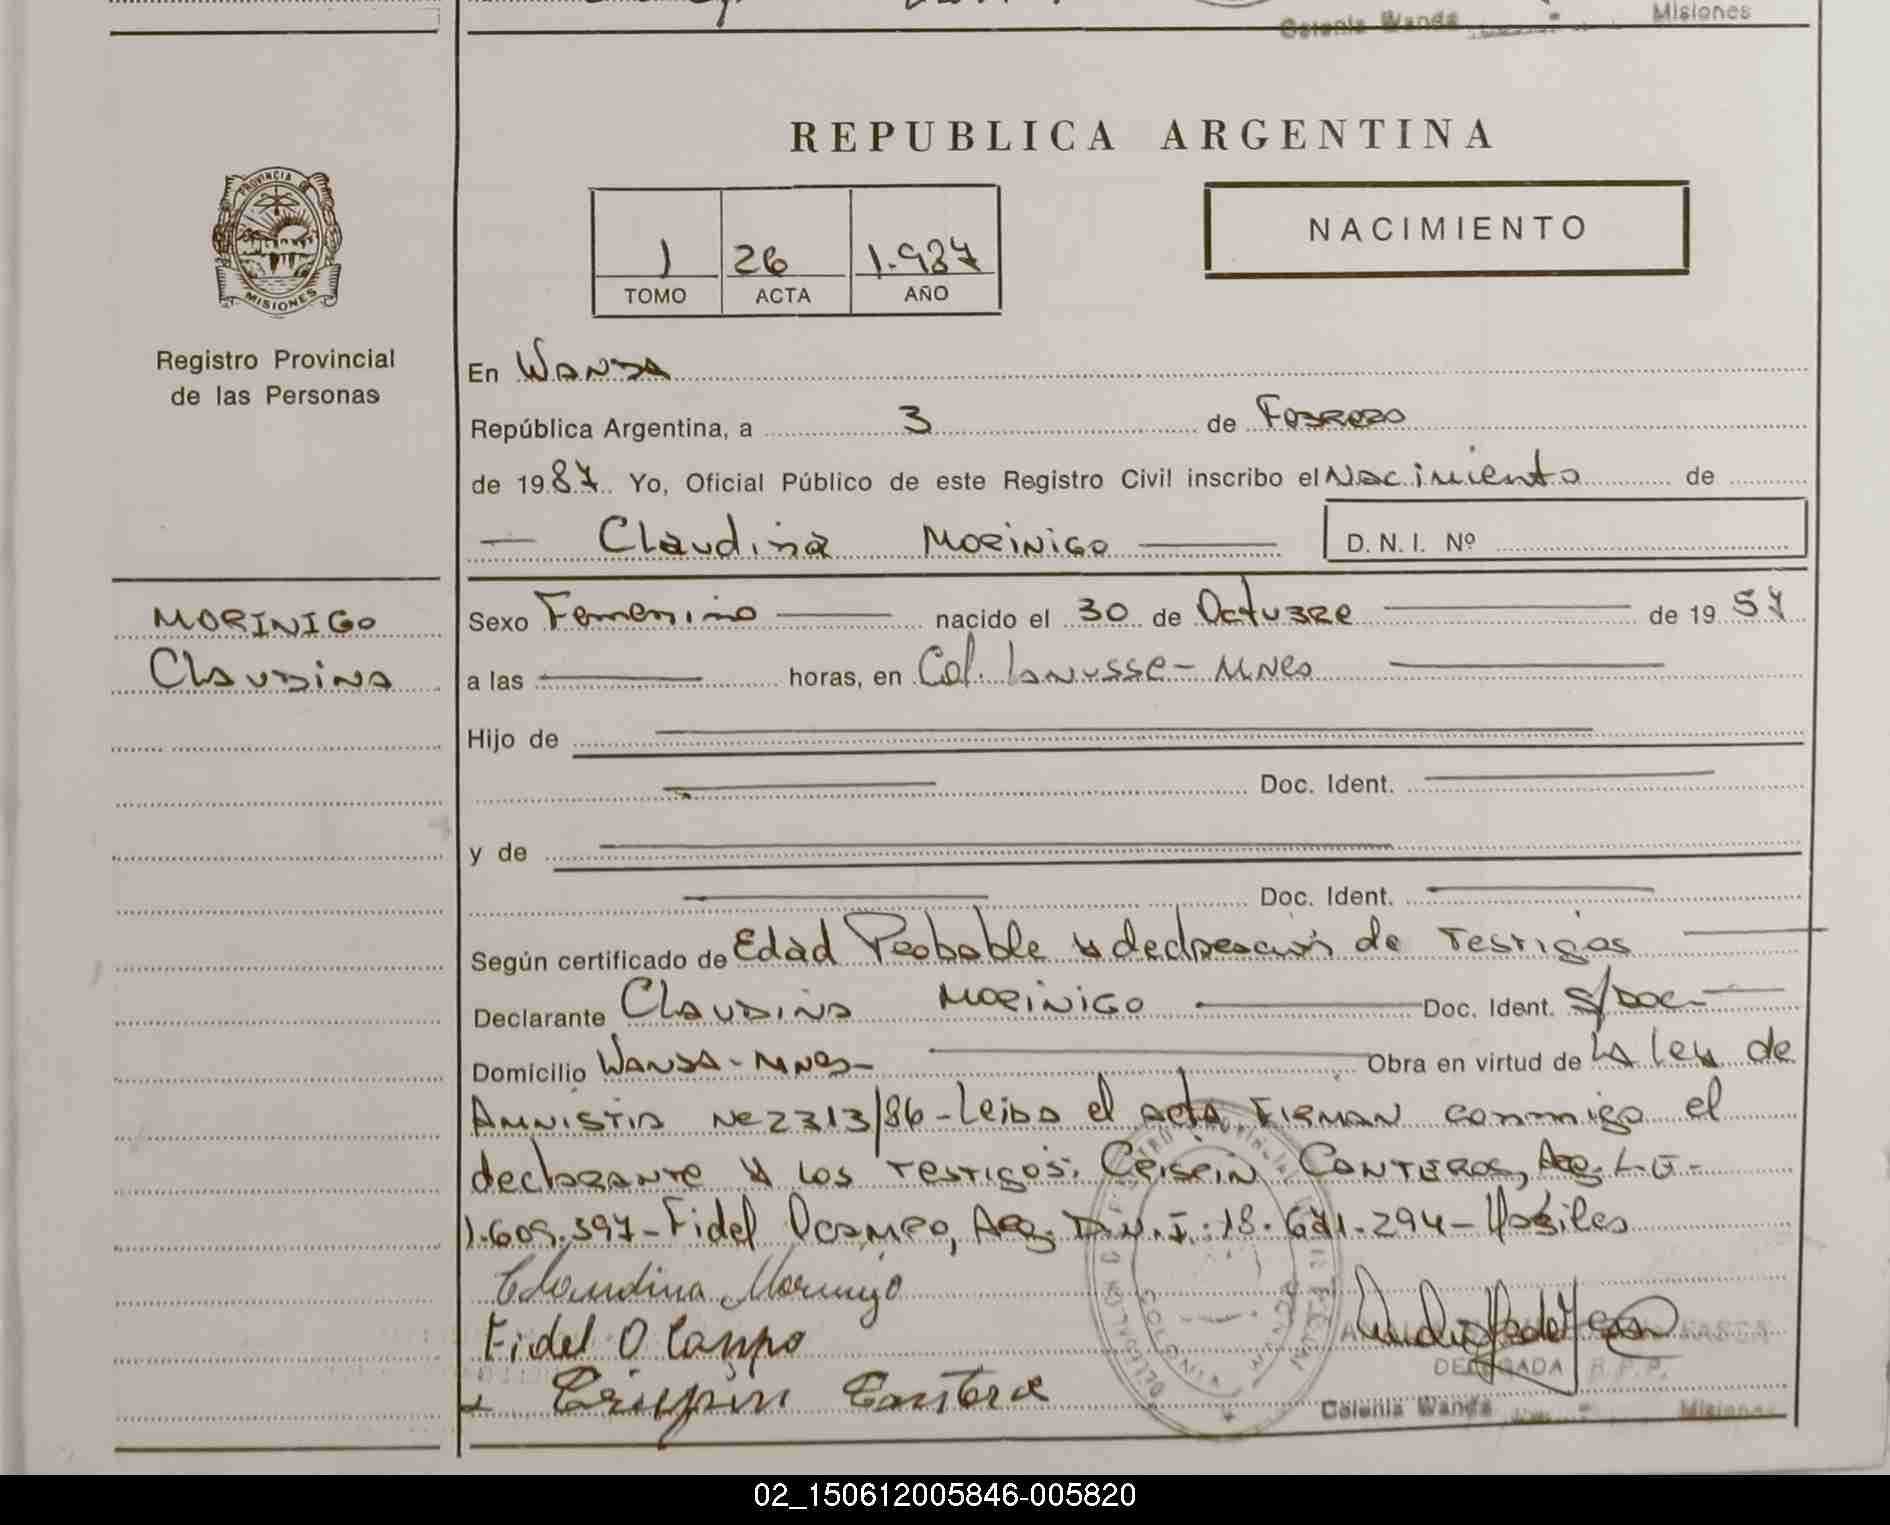 Colonia Wanda Misiones
REPUBLICA ARGENTINA
1 26 1.987
TOMO ACTA AÑO
NACIMIENTO
PROVINCIA DE
MISIONES
Registro Provincial
de las Personas
En Wanda
República Argentina, a 3 de Febrero
de 1987. Yo, Oficial Público de este Registro Civil inscribo el Nacimiento de
— Claudina Morinigo —
D. N. I. Nº
MORINIGO
Claudina
Sexo Femenino — nacido el 30 de Octubre — de 1957
a las — horas, en Col. Lanusse - Mnes —
Hijo de —
— Doc. Ident. —
y de —
— Doc. Ident. —
Según certificado de Edad Probable y declaración de testigos —
Declarante Claudina Morinigo — Doc. Ident. S/Doc. —
Domicilio Wanda - Mnes - — Obra en virtud de la ley de
Amnistia Nº 2313/86 - Leida el acta firman conmigo el
declarante y los testigos: Crispin Conteros, Arg. L.E. -
1.609.397 - Fidel Ocampo, Arg. D.N.I. 18. 294 - Habiles
Claudina Morinigo
Fidel Ocampo
Crispin
COLONIA WANDA
DELEGADA R.P.P.
Colonia Wanda Misiones
02_150612005846-005820